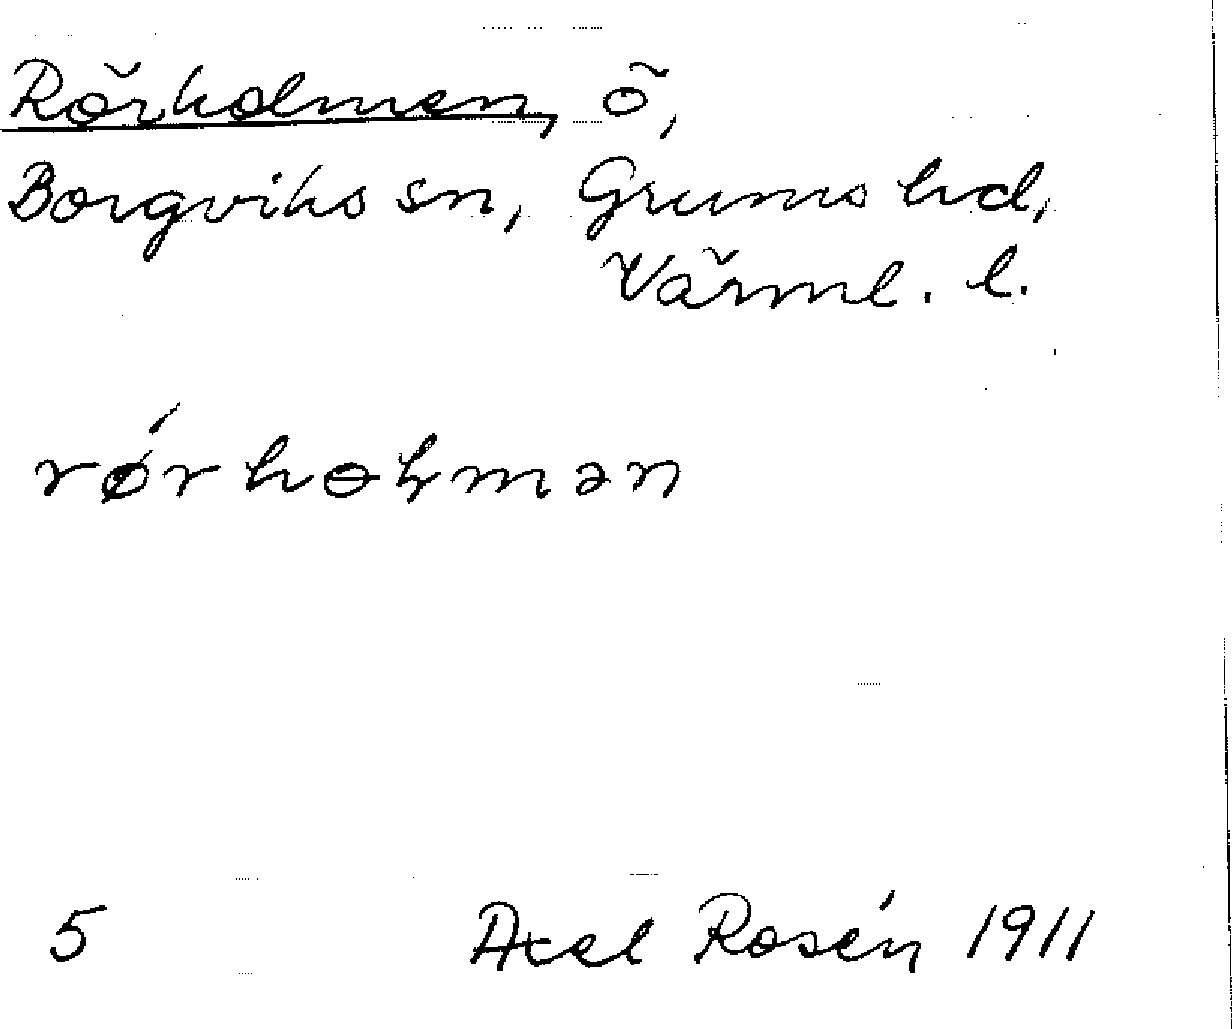 Rörholmen, ö,
Borgviks sn, Grums hd,
Värml. l.
rǿrhoɫmən
5 Axel Rosén 1911